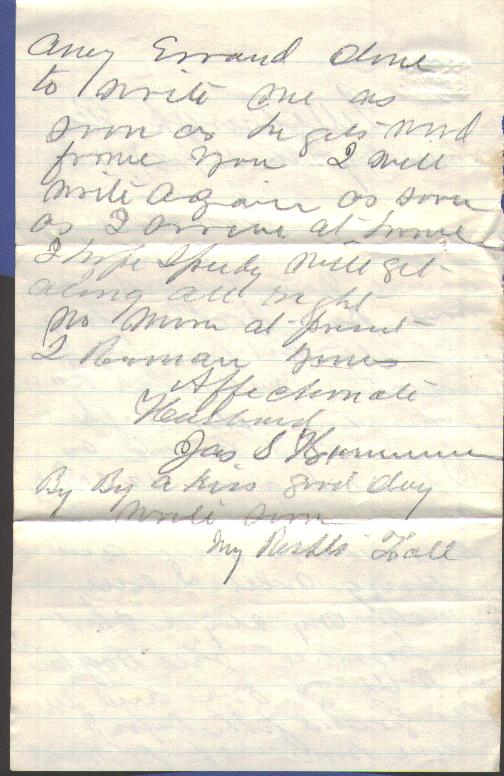 any Errand done
to write me as
soon as he gets word
from you I will
write again as soon
as I arrive at home
I hope Speedy will get
along all right
no more at present
I Remain yours
Affectionate
Husband
Jas S
By By a kiss good day
write soon
My Hall